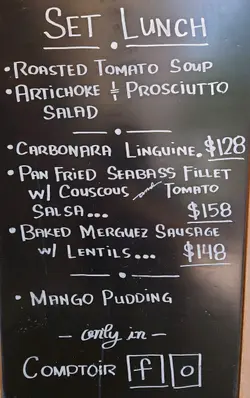 SET LUNCH
• ROASTED TOMATO SOUP
• ARTICHOKE & PROSCIUTTO
SALAD
• CARBONARA LINGUINE. $128
• PAN FRIED SEABASS FILLET
W/ COUSCOUS and TOMATO
SALSA... $158
• BAKED MERGUEZ SAUSAGE
W/ LENTILS... $148
• MANGO PUDDING
— only in —
COMPTOIR f o